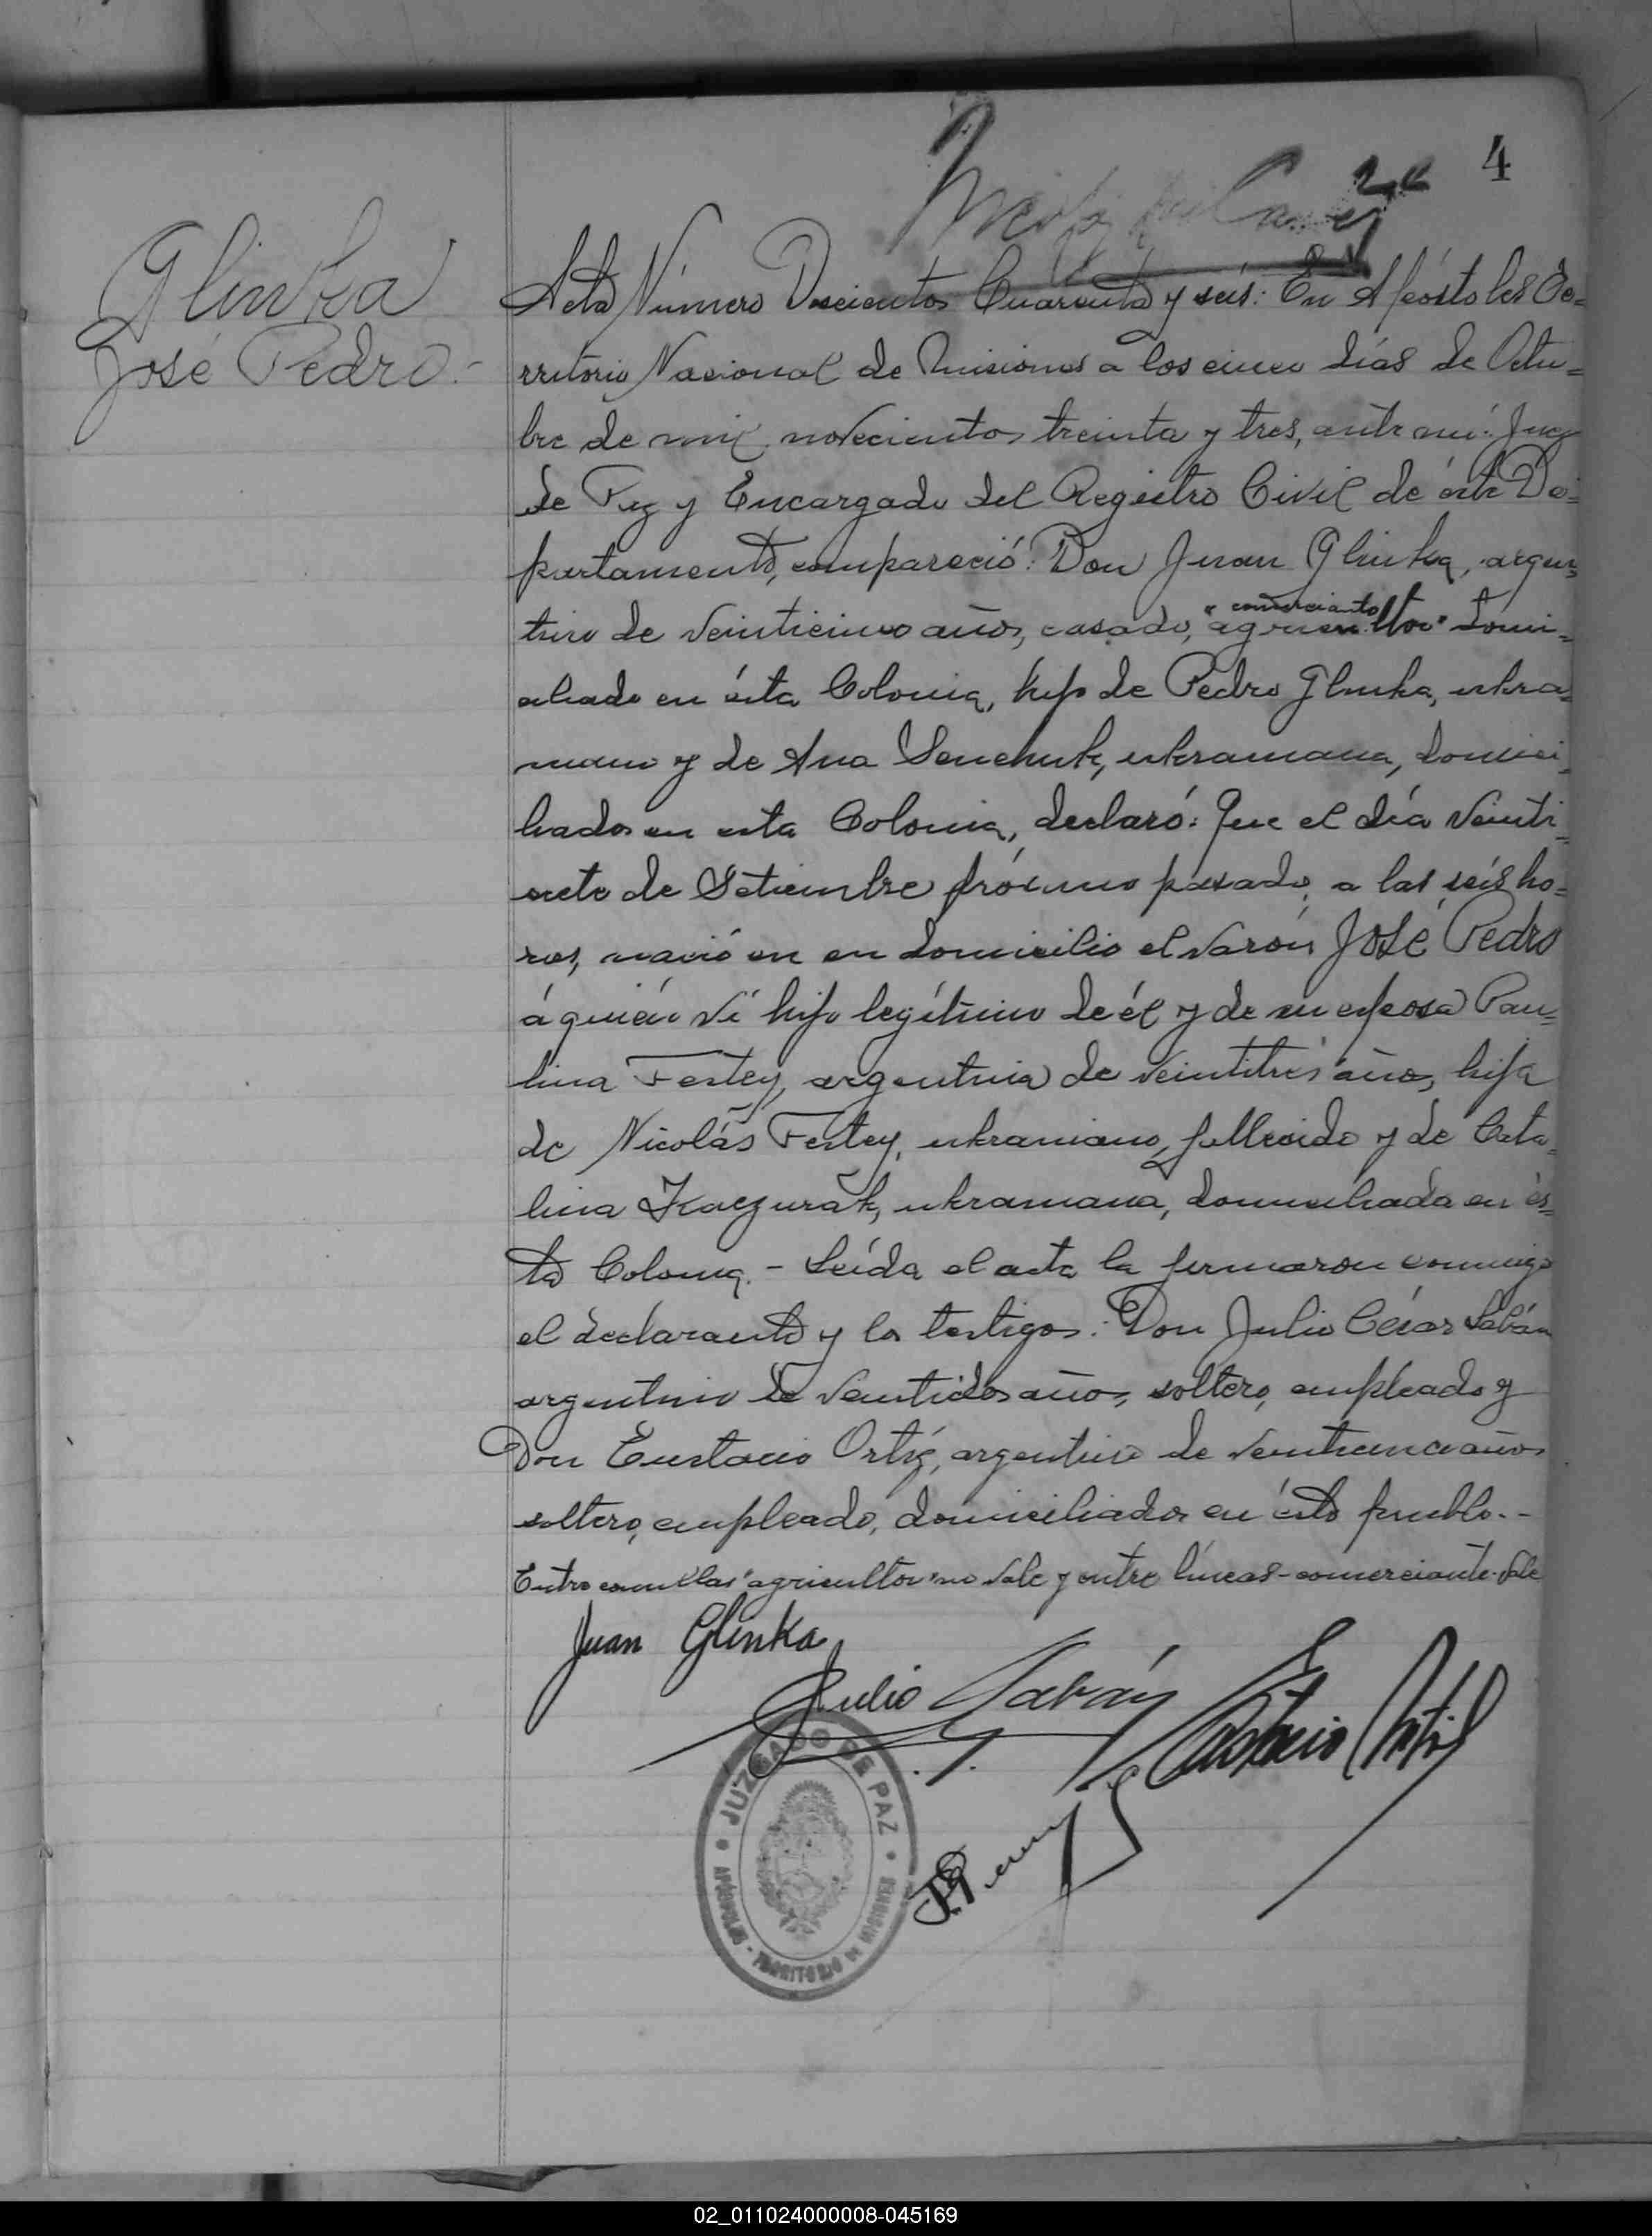 4
Glinka
José Pedro.-
Acta Número Doscientos Cuarenta y seis: En Apóstoles Te=
rritorio Nacional de Misiones a los cinco días de Octu=
bre de mil novecientos treinta y tres, ante mí: Juez
de Paz y Encargado del Registro Civil de éste De=
partamento, compareció: Don Juan Glinka, argen=
tino de veinticinco años, casado, "agricultor" domi=
comerciante
ciliado en ésta Colonia, hijo de Pedro Glinka, ukra=
niano y de Ana Senchuk, ukraniana, domici=
liados en esta Colonia, declaró: Que el día veinti=
siete de Setiembre próximo pasado, a las seis ho=
ras, nació en su domicilio el varón José Pedro
á quién ví hijo legítimo de él y de su esposa Pau=
lina Festey, argentina de veintitrés años, hija
de Nicolás Festey, ukraniano, fallecido y de Cata=
lina Kaczurak, ukraniana, domiciliada en és=
ta Colonia.- Leída el acta la firmaron conmigo
el declarante y los testigos: Don Julio César Sabán
argentino de veintidos años, soltero, empleado y
Don Eustacio Ortíz, argentino de veinticinco años
soltero, empleado, domiciliados en ésto pueblo.-
Entre comillas "agricultor" no vale y entre líneas-comerciante-vale
Juan Glinka
Julio Sabán
Eustacio Ortiz
JUZGADO DE PAZ
APÓSTOLES - TERRITORIO DE MISIONES
02_011024000008-045169